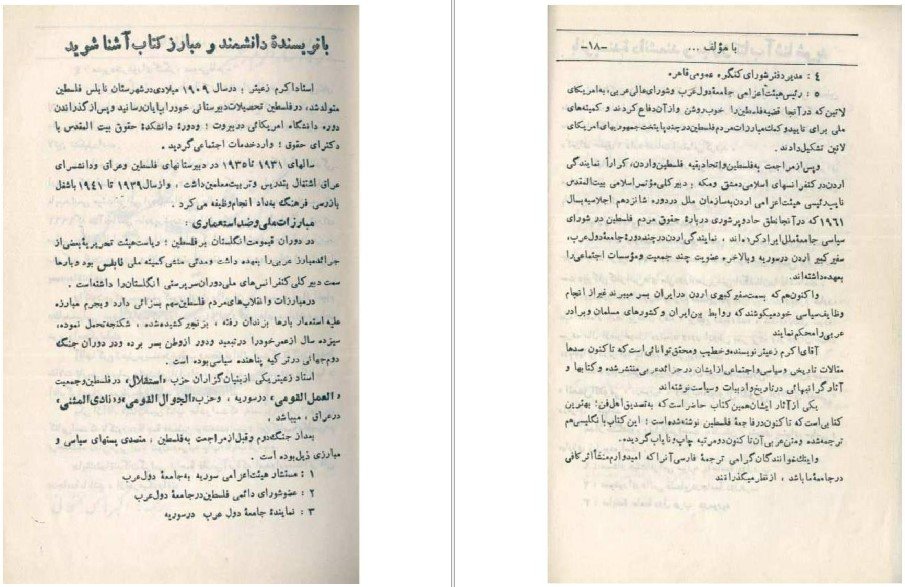 بانویسندهٔ دانشمند و مبارز کتاب آشنا شوید
استاد اکرم زعیتر ؛ درسال ۱۹۰۹ میلادی درشهرستان نابلس فلسطین
متولدشد، درفلسطین تحصیلات دبیرستانی خودرا بپایان رسانید و پس از گذراندن
دوره دانشگاه امریکائی دربیروت ؛ ودورهٔ دانشکدهٔ حقوق بیت المقدس با
دکترای حقوق ؛ وارد خدمات اجتماعی گردید .
سالهای ۱۹۳۱ تا ۱۹۳۵ در دبیرستانهای فلسطین وعراق ودانشسرای
عراق اشتغال بتدریس و تربیت معلمین داشت ، واز سال ۱۹۳۹ تا ۱۹۴۱ باشغل
بازرسی فرهنگ بغداد انجام وظیفه می کرد .
مبارزات ملی و ضد استعماری :
در دوران قیمومت انگلستان بر فلسطین ؛ ریاست هیئت تحریریهٔ بعضی از
جرائد مبارز عربی را بعهده داشت ومدتی منشی کمیته ملی نابلس بود و بارها
سمت دبیر کلی کنفرانس های ملی دوران سرپرستی انگلستان را داشته است .
در مبارزات و انقلاب های مردم فلسطین سهم بسزائی دارد و بجرم مبارزه
علیه استعمار بارها بزندان رفته ، بزنجیر کشیده شده ، شکنجه تحمل نموده،
سیزده سال از عمر خود را در تبعید و دور از وطن بسر برده ودر دوران جنگ
دوم جهانی در ترکیه پناهنده سیاسی بوده است .
استاد زعیتر یکی از بنیان گزاران حزب «استقلال» در فلسطین و جمعیت
«العمل القومی» درسوریه ، وحزب «الجوال القومی» و «نادی المثنی»
درعراق ، میباشد .
بعداز جنگ دوم وقبل از مراجعت به فلسطین ، متصدی پستهای سیاسی و
مبارزی ذیل بوده است .
۱ : مستشار هیئت اعزامی سوریه به جامعهٔ دول عرب
۲ : عضو شورای دائمی فلسطین در جامعهٔ دول عرب
۳ : نمایندهٔ جامعهٔ دول عرب درسوریه
-۱۸- با مؤلف ...
۴ : مدیر دفتر شورای کنگره عمومی قاهره
۵ : رئیس هیئت اعزامی جامعهٔ دول عرب وشورای عالی عربی، به امریکای
لاتین که در آنجا قضیه فلسطین را خوب روشن واز آن دفاع کردند و کمیته های
ملی برای تایید و کمک بمبارزات مردم فلسطین در چند پایتخت جمهوریهای امریکای
لاتین تشکیل دادند.
وپس از مراجعت به فلسطین واتحاد بقیه فلسطین واردن، کراراً نمایندگی
اردن در کنفرانسهای اسلامی دمشق ومکه ؛ دبیر کلی مؤتمر اسلامی بیت المقدس
نایب رئیسی هیئت اعزامی اردن به سازمان ملل در دوره شانزدهم اجلاسیه بسال
۱۹۶۱ که در آنجا نطق حاد و پرشوری دربارهٔ حقوق مردم فلسطین در شورای
سیاسی جامعهٔ ملل ایراد کرده اند ، نمایندگی اردن در چند دورهٔ جامعهٔ دول عرب،
سفیر کبیر اردن درسوریه و بالاخره عضویت چند جمعیت و مؤسسات اجتماعی را
بعهده داشته اند.
واکنون هم که بسمت سفیر کبیری اردن در ایران بسر میبرند غیر از انجام
وظایف سیاسی خود میکوشند که روابط بین ایران و کشورهای مسلمان و برادر
عربی را محکم نمایند
آقای اکرم زعیتر نویسنده و خطیب و محقق توانائی است که تا کنون صدها
مقالات تاریخی و سیاسی و اجتماعی از ایشان در جرائد عربی منتشر شده و کتابها و
آثار گرانبهائی در تاریخ و ادبیات و سیاست نوشته اند
یکی از آثار ایشان همین کتاب حاضر است که به تصدیق اهل فن؛ بهترین
کتابی است که تا کنون در فاجعهٔ فلسطین نوشته شده است ؛ این کتاب با انگلیسی هم
ترجمه شده ومتن عربی آن تا کنون دو مرتبه چاپ و نایاب گردیده.
واینک خوانندگان گرامی ترجمهٔ فارسی آنرا که امیدوارم منشأ اثر کافی
در جامعهٔ ما باشد ، از نظر میگذرانند